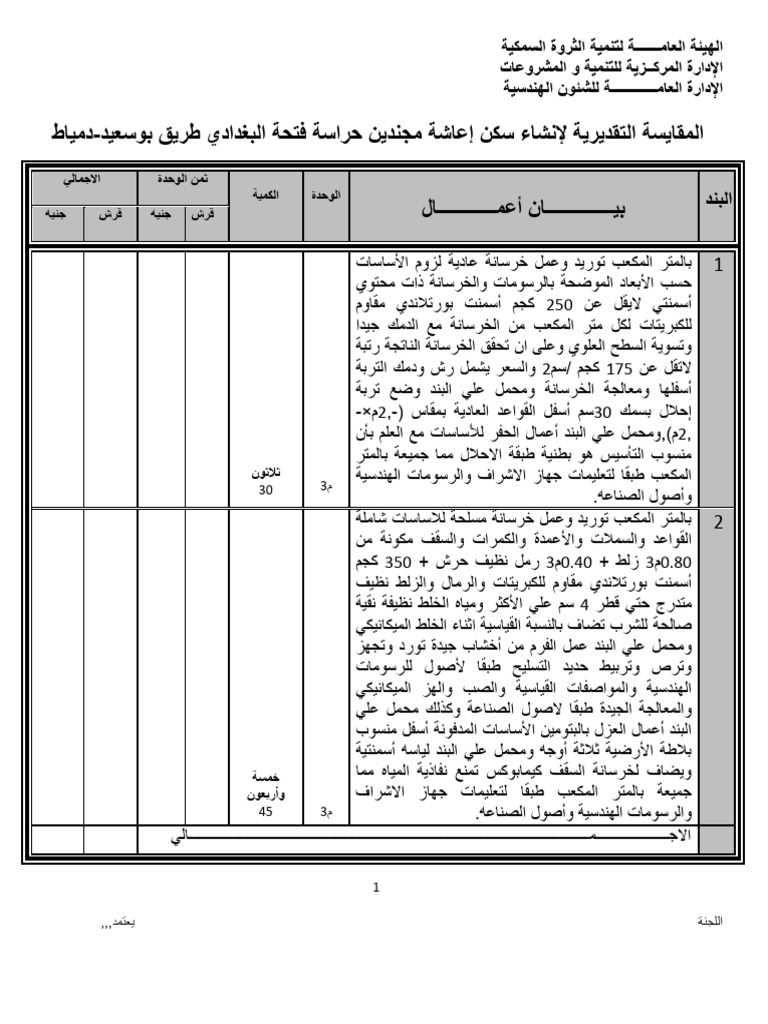 الهيئة العامـــــــة لتنمية الثروة السمكية
الإدارة المركـزية للتنمية و المشروعات
الإدارة العامـــــــــــــة للشئون الهندسية
المقايسة التقديرية لإنشاء سكن إعاشة مجندين حراسة فتحة البغدادي طريق بوسعيد-دمياط
البند
بيـــــــــــــان أعمـــــــــــــال
الوحدة
الكمية
ثمن الوحدة
الاجمالي
قرش
جنيه
قرش
جنيه
1
بالمتر المكعب توريد وعمل خرسانة عادية لزوم الأساسات
حسب الأبعاد الموضحة بالرسومات والخرسانة ذات محتوي
أسمنتي لايقل عن 250 كجم أسمنت بورتلاندي مقاوم
للكبريتات لكل متر المكعب من الخرسانة مع الدمك جيدا
وتسوية السطح العلوي وعلى ان تحقق الخرسانة الناتجة رتبة
لاتقل عن 175 كجم /سم2 والسعر يشمل رش ودمك التربة
أسفلها ومعالجة الخرسانة ومحمل علي البند وضع تربة
إحلال بسمك 30سم أسفل القواعد العادية بمقاس (-,2م×-
,2م),ومحمل علي البند أعمال الحفر للأساسات مع العلم بأن
منسوب التأسيس هو بطنية طبقة الاحلال مما جميعة بالمتر
المكعب طبقا لتعليمات جهاز الاشراف والرسومات الهندسية
وأصول الصناعه.
م3
ثلاثون
30
2
بالمتر المكعب توريد وعمل خرسانة مسلحة للاساسات شاملة
القواعد والسملات والأعمدة والكمرات والسقف مكونة من
0.80م3 زلط + 0.40م3 رمل نظيف حرش + 350 كجم
أسمنت بورتلاندي مقاوم للكبريتات والرمال والزلط نظيف
متدرج حتي قطر 4 سم علي الأكثر ومياه الخلط نظيفة نقية
صالحة للشرب تضاف بالنسبة القياسية اثناء الخلط الميكانيكي
ومحمل علي البند عمل الفرم من أخشاب جيدة تورد وتجهز
وترص وتربيط حديد التسليح طبقا لأصول للرسومات
الهندسية والمواصفات القياسية والصب والهز الميكانيكي
والمعالجة الجيدة طبقا لاصول الصناعة وكذلك محمل علي
البند أعمال العزل بالبتومين الأساسات المدفونة أسفل منسوب
بلاطة الأرضية ثلاثة أوجه ومحمل علي البند لياسه أسمنتية
ويضاف لخرسانة السقف كيمابوكس تمنع نفاذية المياه مما
جميعة بالمتر المكعب طبقا لتعليمات جهاز الاشراف
والرسومات الهندسية وأصول الصناعه.
م3
خمسة
وأربعون
45
الاجـــــــــــــمـــــــــــــــــــــــــــــــــالي
1
اللجنة
يعتمد,,,